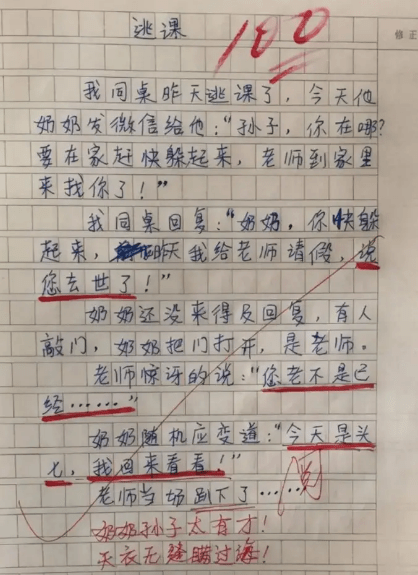 逃课
100
修正
我同桌昨天逃课了，今天他
奶奶发微信给他：“孙子，你在哪？
要在家赶快躲起来，老师到家里
来找你了！”
我同桌回复：“奶奶，你快躲
起来，昨天我给老师请假，说
您去世了！”
奶奶还没来得及回复，有人
敲门，奶奶把门打开，是老师。
老师惊讶的说：“您老不是已
经……”
奶奶随机应变道：“今天是头
七，我回来看看！”
老师当场趴下了……
阅
奶奶孙子太有才！
天衣无缝瞒过海！